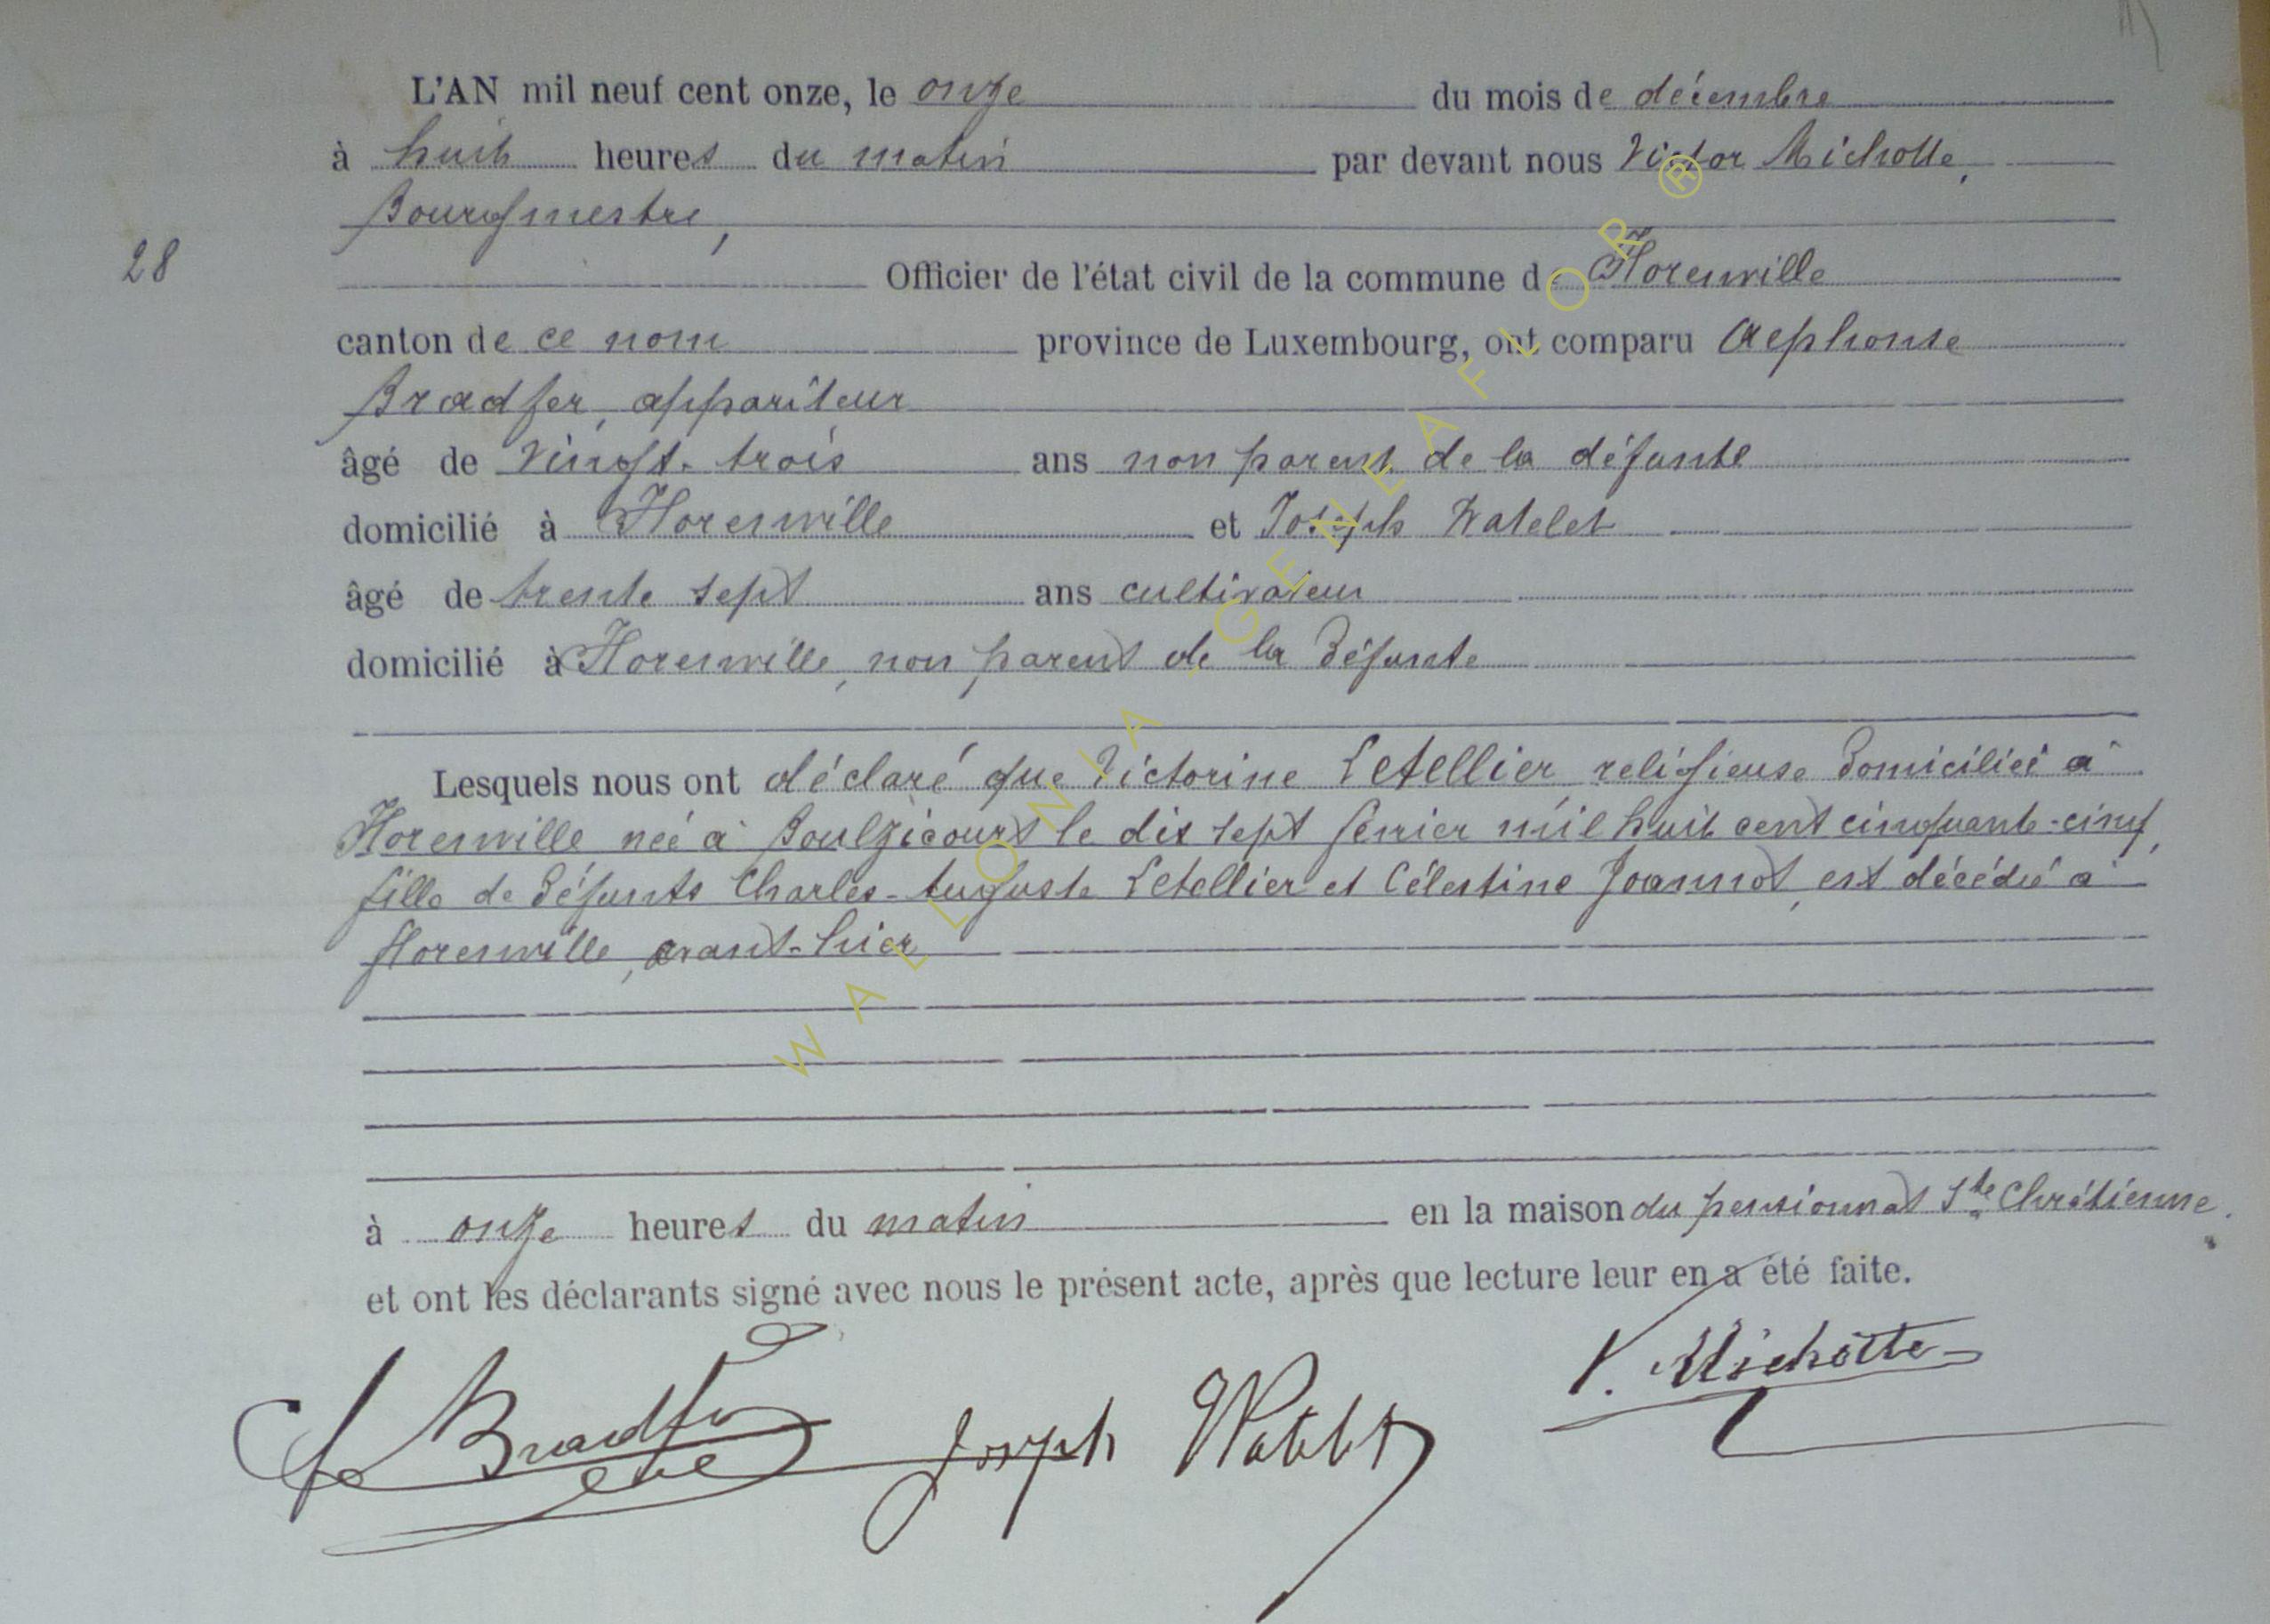 L'AN mil neuf cent onze, le onze du mois de décembre
à huit heures du matin par devant nous Victor Michotte,
Bourgmestre,
28
Officier de l'état civil de la commune de Florenville
canton de ce nom province de Luxembourg, ont comparu Alphonse
Bradfer, appariteur
âgé de vingt-trois ans non parent de la défunte
domicilié à Florenville et Joseph Watelet
âgé de trente sept ans cultivateur
domicilié à Florenville, non parent de la défunte
Lesquels nous ont déclaré que Victorine Letellier religieuse domiciliée à
Florenville née à Boulzicourt le dix sept février mil huit cent cinquante-cinq,
fille de défunts Charles-Auguste Letellier et Célestine Joannot, est décédée à
Florenville, avant-hier
à onze heures du matin en la maison du pensionnat Ste Chrétienne.
et ont les déclarants signé avec nous le présent acte, après que lecture leur en a été faite.
Bradfer Joseph Watelet V. Michotte
WALLONIA GENEAFLOR ®